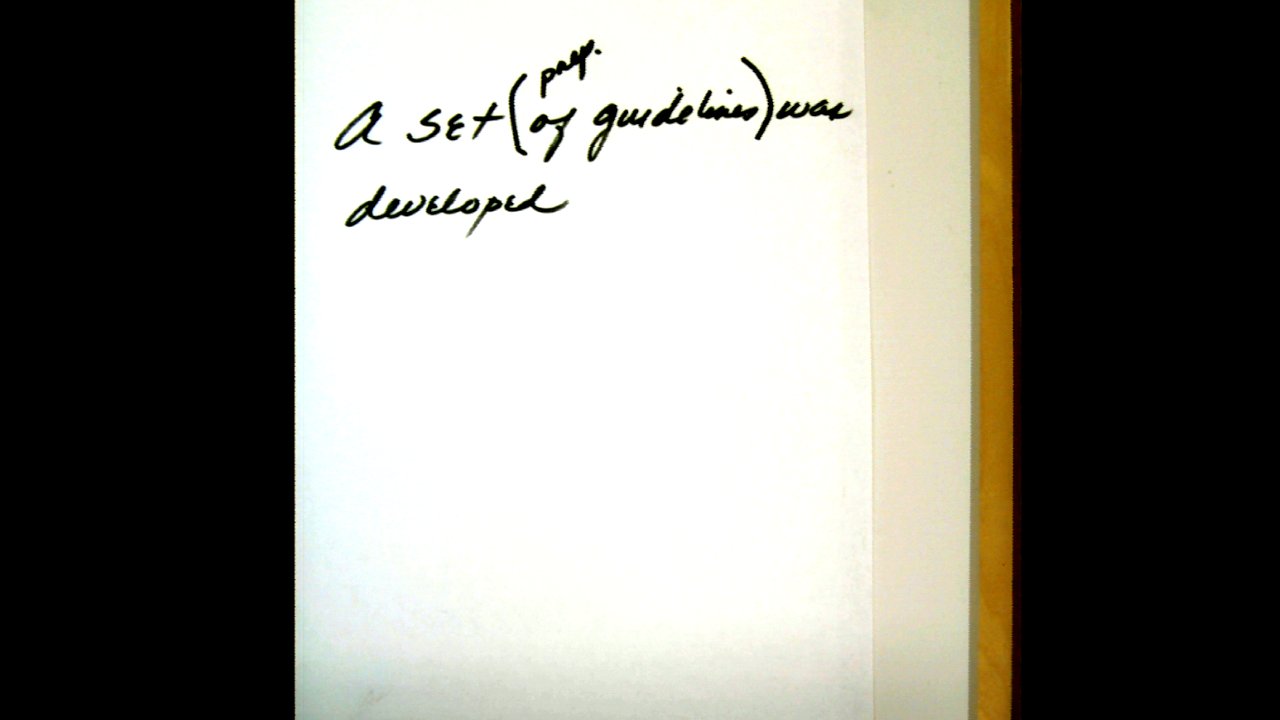 prep.
A set (of guidelines) was
developed